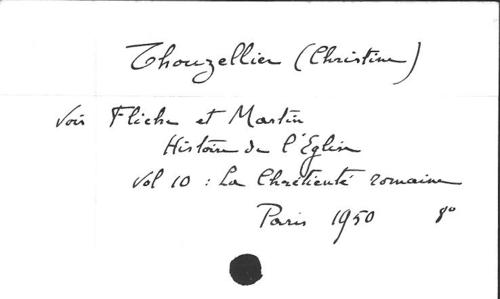 Thouzellier (Christine)
voir Fliche et Martin
Histoire de l'Eglise
Vol 10 : La Chrétienté romaine
Paris 1950 8°